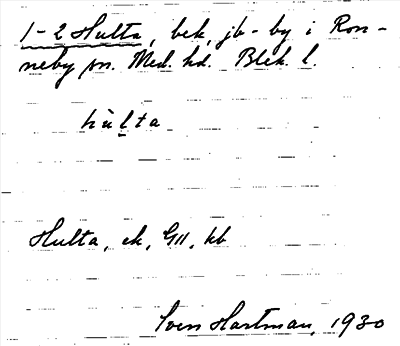 1-2 Hulta, bek, jb-by i Ron-
neby sn. Med. hd. Blek. l.
hùlta
Hulta, ek, GII, kb
Sven Hartman, 1930